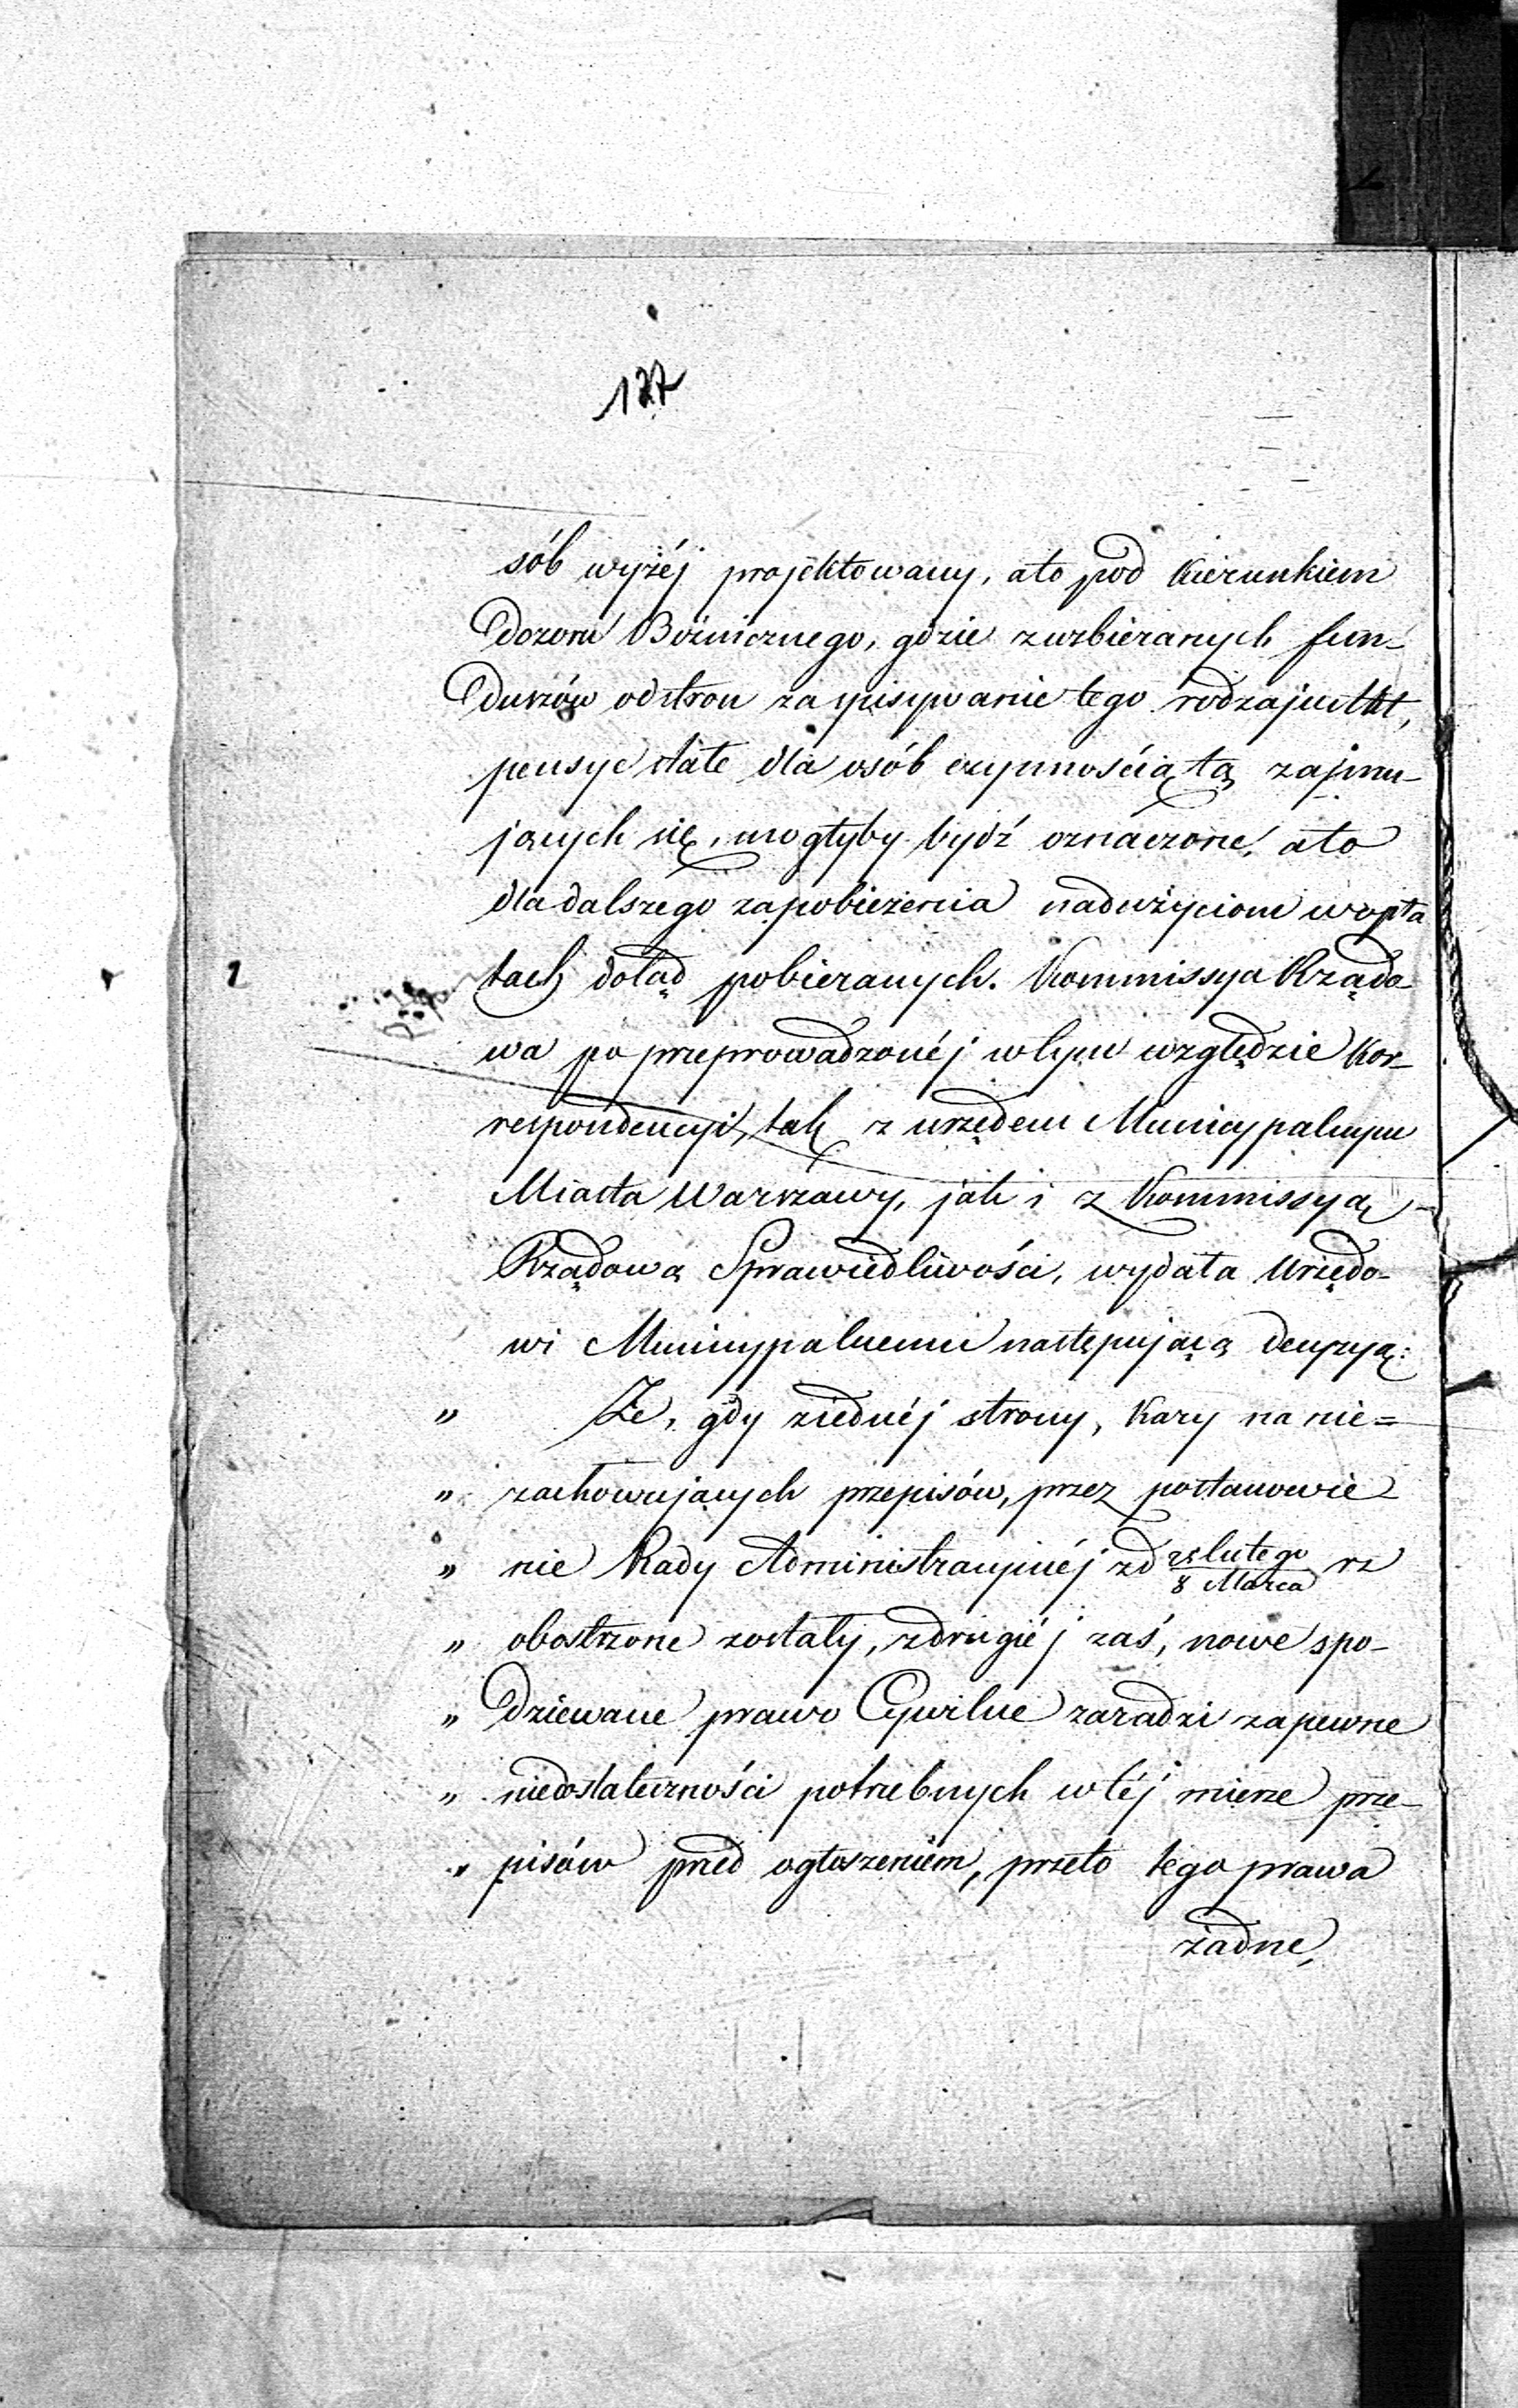 127
sób wyżéj projektowany, a to pod kierunkiem
Dozoru Bóźnicznego, gdzie z uzbieranych fun-
duszów od stron za spisywanie tego rodzaju Akt,
pensye stałe dla osób czynnością tą zajmu-
jących się, mogłyby bydź oznaczone, a to
dla dalszego zapobieżenia nadużyciom w opła
tach dotąd pobieranych. Kommissya Rządo-
wa po przeprowadzonéj w tym względzie kor-
respondencyi, tak z urzędem Municypalnym
Miasta Warszawy, jak i z Kommissyą
Rządową Sprawiedliwości, wydała Urzędo-
wi Municypalnemu następującą decyzyą:
„ Że, gdy z jednéj strony, kary na nie=
„ zachowujących przepisów, przez postanowie-
„ nie Rady Administracyjnéj z d 25 lutego / 8 Marca rz
„ obostrzone zostały, z drugiéj zaś, nowe spo-
„ dziewane prawo Cywilne zaradzi zapewne
„ niedostateczności potrzebnych w téj mierze prze-
„ pisów przed ogłoszeniem, przeto tego prawa
żadne,